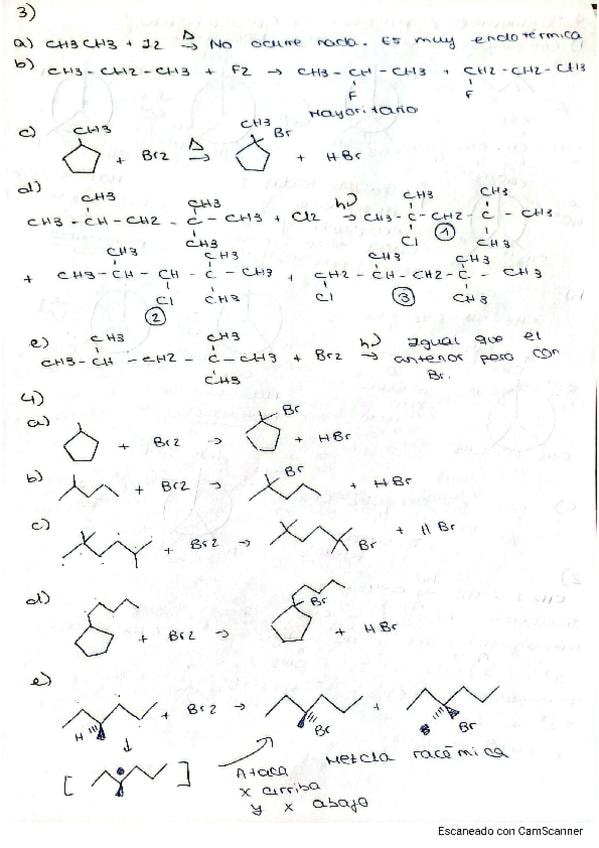 3)
a) CH3CH3 + I2 Δ→ No ocurre nada. Es muy endotérmica
b) CH3 - CH2 - CH3 + F2 → CH3 - CH - CH3 + CH2 - CH2 - CH3
F F
Mayoritario
c) CH3 + Br2 Δ→ CH3 Br + HBr
d)
CH3 CH3 CH3 CH3
CH3 - CH - CH2 - C - CH3 + Cl2 hν→ CH3 - C - CH2 - C - CH3
CH3 Cl 1 CH3
CH3 CH3 CH3 CH3
+ CH3 - CH - CH - C - CH3 + CH2 - CH - CH2 - C - CH3
Cl CH3 Cl CH3
2 3
e) CH3 CH3
CH3 - CH - CH2 - C - CH3 + Br2 hν→ Igual que el
CH3 anterior pero con
Br.
4)
a) + Br2 → Br + HBr
b) + Br2 → Br + HBr
c) + Br2 → Br + HBr
d) + Br2 → Br + HBr
e)
H + Br2 → Br + Br
[ ] Ataca Mezcla racémica
x arriba
y x abajo
Escaneado con CamScanner